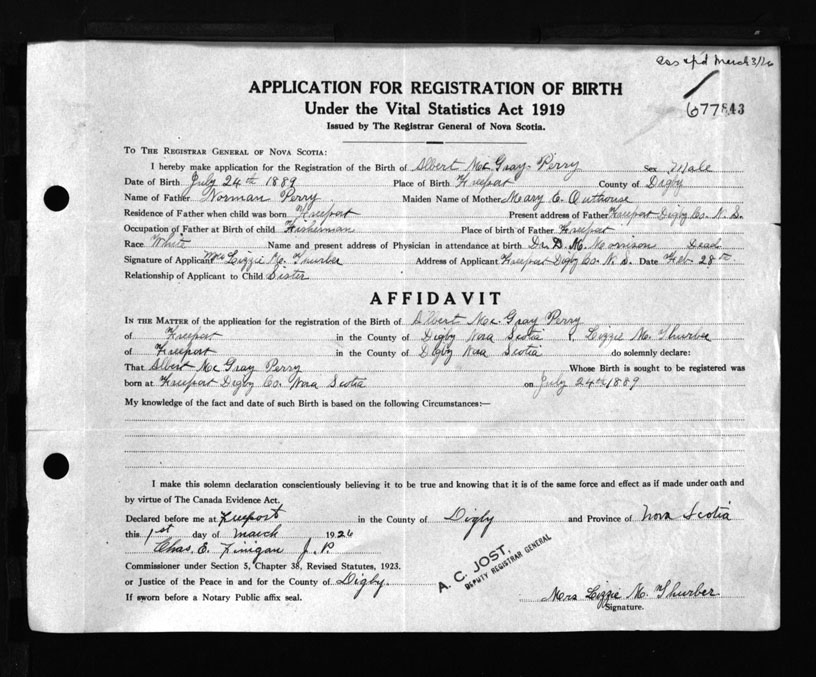 March 3/26
APPLICATION FOR REGISTRATION OF BIRTH
677843
Under the Vital Statistics Act 1919
Issued by The Registrar General of Nova Scotia.
TO THE REGISTRAR GENERAL OF NOVA SCOTIA:
I hereby make application for the Registration of the Birth of Albert Mac Gray Perry Sex Male
Date of Birth July 24th 1889 Place of Birth Freeport County of Digby
Name of Father Norman Perry Maiden Name of Mother Mary E. Outhouse
Residence of Father when child was born Freeport Present address of Father Freeport Digby Co. N.S.
Occupation of Father at Birth of child Fisherman Place of birth of Father Freeport
Race White Name and present address of Physician in attendance at birth Dr. D. M. Morrison Dead
Signature of Applicant Mrs Lizzie M. Thurber Address of Applicant Freeport Digby Co. N.S. Date Feb. 28th
Relationship of Applicant to Child Sister
AFFIDAVIT
IN THE MATTER of the application for the registration of the Birth of Albert Mac Gray Perry
of Freeport in the County of Digby Nova Scotia I, Lizzie M. Thurber
of Freeport in the County of Digby Nova Scotia do solemnly declare:
That Albert Mac Gray Perry Whose Birth is sought to be registered was
born at Freeport Digby Co. Nova Scotia on July 24th 1889
My knowledge of the fact and date of such Birth is based on the following Circumstances:—
I make this solemn declaration conscientiously believing it to be true and knowing that it is of the same force and effect as if made under oath and
by virtue of The Canada Evidence Act.
Declared before me at Freeport in the County of Digby and Province of Nova Scotia
this 1st day of March 1926
Chas. E. Finigan J. P.
Commissioner under Section 5, Chapter 38, Revised Statutes, 1923.
or Justice of the Peace in and for the County of Digby.
A. C. JOST,
DEPUTY REGISTRAR GENERAL
If sworn before a Notary Public affix seal.
Mrs Lizzie M. Thurber
Signature.